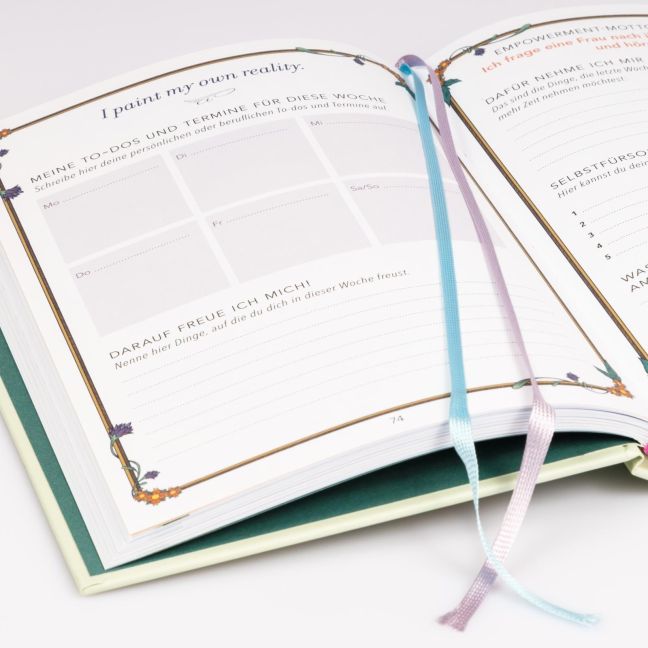 I paint my own reality.
MEINE TO-DOS UND TERMINE FÜR DIESE WOCHE
Schreibe hier deine persönlichen oder beruflichen To-dos und Termine auf.
Mo
Di
Mi
Do
Fr
Sa/So
DARAUF FREUE ICH MICH!
Nenne hier Dinge, auf die du dich in dieser Woche freust.
74
EMPOWERMENT-MOTTO
Ich frage eine Frau nach
und
DAFÜR NEHME ICH MIR
Das sind die Dinge, die letzte
mehr Zeit nehmen möchtest.
Hier kannst du
1
2
3
4
5
WAS